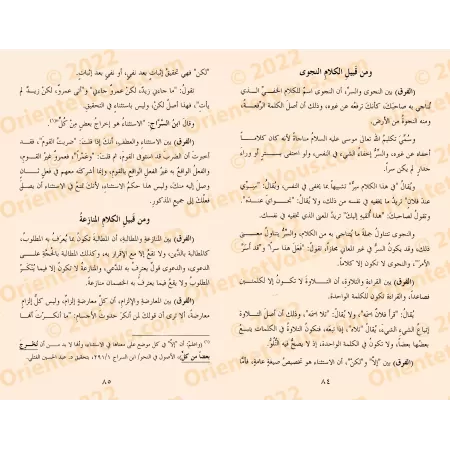 ومن قبيل الكلام النجوى
(الفرق) بين النجوى والسرّ، أن النجوى اسم للكلام الخفيّ الذي
تُناجي به صاحبَك، كأنك ترفعُه عن غيره، وذلك أن أصل الكلمة الرِّفعة،
ومنه النجوة من الأرض.
وسُمّي تكليمُ الله تعالى موسى عليه السلام مناجاةً لأنه كان كلاماً
أخفاه عن غيره، والسرُّ إخفاءُ الشيء في النفس، ولو اختفى بسترٍ أو وراء
جدارٍ لم يكن سراً.
ويُقال "في هذا الكلام سرٌّ" تشبيهاً بما يخفى في النفس، ويُقال: "سِرّي
عند فلان" تريدُ ما يُخفيه في نفسه من ذلك، ولا يُقال: "نجواي عنده".
وتقول لصاحبك: "هذا أُلقيه إليك" تريدُ المعنى الذي تُخفيه في نفسك.
والنجوى تتناول جملةَ ما يُتناجى به من الكلام، والسرُّ يتناولُ معنى
ذلك، وقد يكونُ السرُّ في غير المعاني مجازاً، تقولُ: "فعل هذا سراً" و"قد أسرّ
الأمر"، والنجوى لا تكون إلا كلاماً.
(الفرق) بين القراءة والتلاوة، أن التلاوة لا تكون إلا لكلمتين
فصاعداً، والقراءة تكون للكلمة الواحدة.
يُقال: "قرأ فلانٌ اسمَه"، ولا يُقال: "تلا اسمَه"، وذلك أن أصل التلاوة
إتباعُ الشيءِ الشيءَ، يُقال: "تلاه"، إذا تبعه، فتكون التلاوة في الكلمات يتبعُ
بعضُها بعضاً، ولا تكون في الكلمة الواحدة، إذ لا يصحُّ فيه التُّلُوُّ.
(الفرق) بين "إلاّ" و"لكن"، أن الاستثناء هو تخصيصُ صيغةٍ عامةٍ، فأمّا
٨٤
"لكن" فهي تحقيقُ إثباتٍ بعد نفي، أو نفيٍ بعد إثباتٍ.
تقولُ: "ما جاءني زيدٌ، لكنْ عمروٌ جاءني" و"أتى عمروٌ، لكنْ زيدٌ لم
يأت"، فهذا أصلُ لكنْ، وليس باستثناء في التحقيق.
وقال ابنُ السرَّاج: "الاستثناء هو إخراجُ بعضٍ مِنْ كلٍّ"(١).
(الفرق) بين الاستثناء والعطف، أنك إذا قلتَ: "ضربتُ القومَ"، فقد
أخبرتَ أن الضربَ قد استوفى القومَ، ثم قلت: "وعَمْراً"، فعمروٌ غيرُ القوم،
والفعلُ الواقع به غيرُ الفعل الواقع بالقوم، وإنما أشركته معهم في فعلٍ ثانٍ
وصل إليه منك، وليس هذا حكمُ الاستثناء، لأنك تمنعُ في الاستثناء أن يصلَ
فعلُك إلى جميع المذكور.
ومن قبيل الكلام المنازعةُ
(الفرق) بين المنازعةِ والمطالبةِ، أن المطالبةَ تكونُ بما يُعرفُ به المطلوبُ،
كالمطالبةِ بالدَّين، ولا تقعُ إلا مع الإقرار به، وكذلك المطالبةُ بالحُجَّةِ على
الدعوى، والدعوى قولٌ يعترفُ به المدّعي، والمنازعةُ لا تكونُ إلا فيما يُنكرُ
المطلوبُ ولا يقعُ فيما يعترفُ به الخصمان منازعةٌ.
(الفرق) بين المعارضةِ والإلزامِ، أن كلَّ معارضةٍ إلزامٌ، وليس كلُّ إلزامٍ
معارضةً، ألا ترى أن قولَك لمن أنكرَ حدوثَ الأجسام: "ما أنكرتَ أنها
(١) (واعلم) أن "إلاّ" في كل موضع على معناها في الاستثناء وأنها لا بد من أن تُخرِجَ
بعضاً من كُلٍّ، الأصول في النحو/ ابن السراج ٢٩١/١، بتحقيق د. عبد الحسين الفتلي.
٨٥
© 2022
Orientenhouse.com